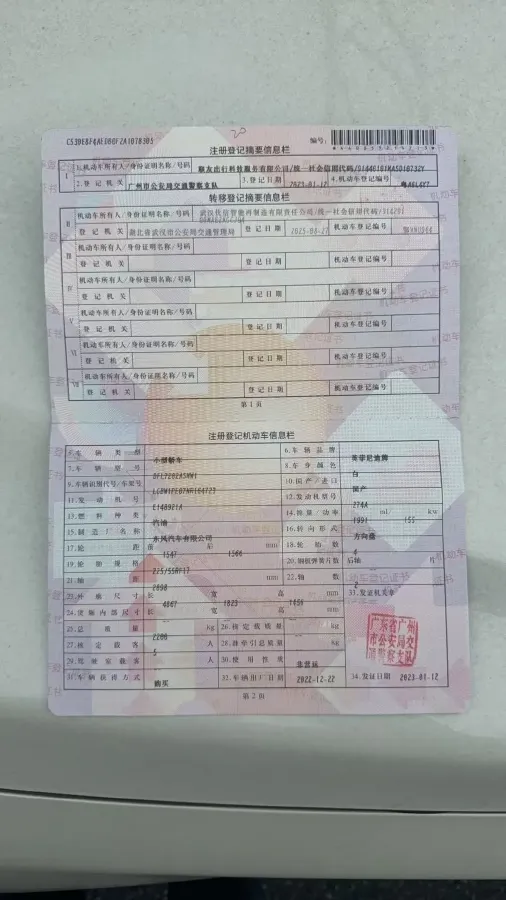 20
编号:
注册登记摘要信息栏
I 1.机动车所有人/身份证明名称/号码 顺友出行科技服务有限公司/统一社会信用代码/
2.登记机关 广州市公安局交通警察支队 3.登记日期 2023-01-12 4.机动车登记编号
转移登记摘要信息栏
II 机动车所有人/身份证明名称/号码 /统一社会信用代码/
登记机关 湖北省武汉市公安局交通管理局 登记日期 2025-08-27 机动车登记编号
III 机动车所有人/身份证明名称/号码
登记机关 登记日期 机动车登记编号
IV 机动车所有人/身份证明名称/号码
登记机关 登记日期 机动车登记编号
V 机动车所有人/身份证明名称/号码
登记机关 登记日期 机动车登记编号
VI 机动车所有人/身份证明名称/号码
登记机关 登记日期 机动车登记编号
VII 机动车所有人/身份证明名称/号码
登记机关 登记日期 机动车登记编号
第1页
注册登记机动车信息栏
5.车辆类型 小型轿车 6.车辆品牌 英菲尼迪牌
7.车辆型号 8.车身颜色 白
9.车辆识别代号/车架号 10.国产/进口 国产
11.发动机号 12.发动机型号 274A
13.燃料种类 汽油 14.排量/功率 1991 ml/ 155 kw
15.制造厂名称 东风汽车有限公司 16.转向形式 方向盘
17.轮距 前 1547 后 1566 mm 18.轮胎数 4
19.轮胎规格 225/55RF17 20.钢板弹簧片数 后轴
21.轴距 2898 mm 22.轴数 2
23.外廓尺寸 长 4867 宽 1823 高 1456 mm 33.发证机关章
24.货厢内部尺寸 长 宽 高 mm
25.总质量 kg 26.核定载质量 kg
27.核定载客 5 人 28.准牵引总质量 kg
29.驾驶室载客 人 30.使用性质 非营运
31.车辆获得方式 购买 32.车辆出厂日期 2022-12-22 34.发证日期 2023-01-12
广东省广州市公安局交通警察支队
第2页